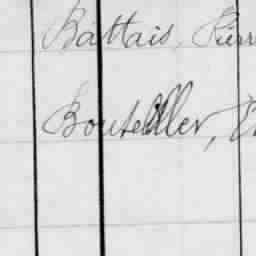 Battais, Pierr
Bouteiller, E